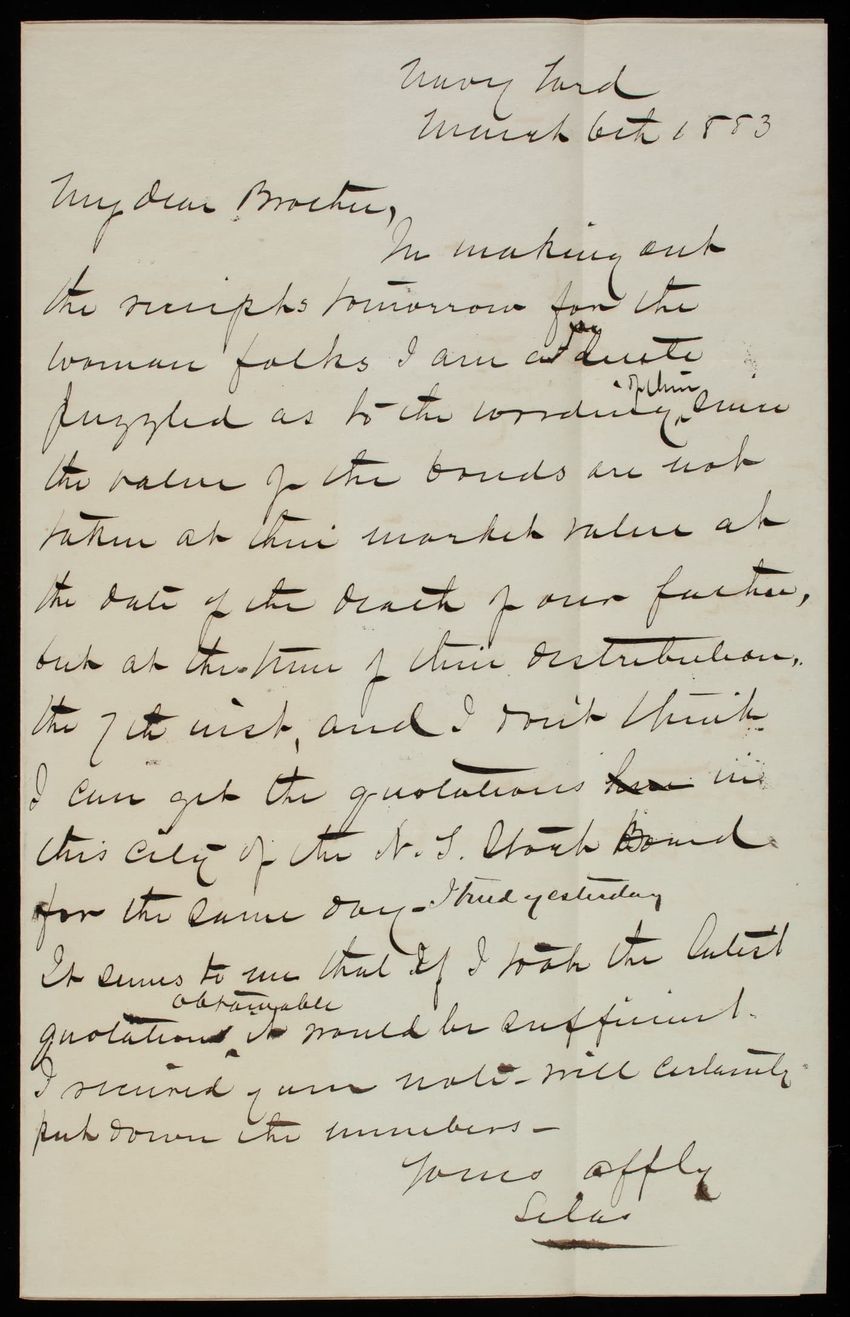 Navy Yard
March 6th 1883
My dear Brother,
In making out
the receipts tomorrow for the
woman folks I am a
puzzled as to the wording, of them since
the value of the bonds are not
taken at their market value at
the date of the death of our father,
but at the time of their distribution,
the 7th inst, and I don't think
I can get the quotations here in
this city of the N.Y. Stock Board
for the same day - I tried yesterday
It seems to me that if I took the latest
obtainable
quotations it would be sufficient.
I received your note - will certainly
put down the numbers -
Yours affly
Silas